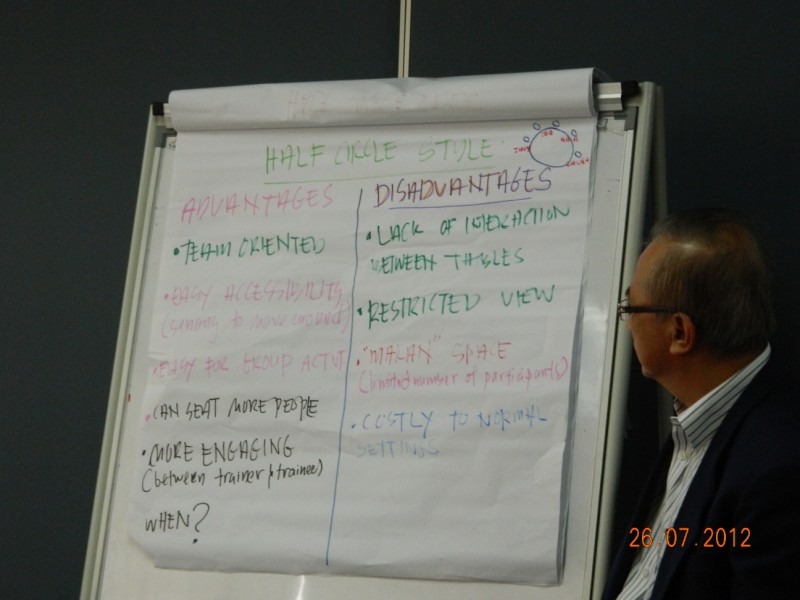 HALF CIRCLE STYLE
ADVANTAGES
• TEAM ORIENTED
• EASY ACCESSIBILITY
to move around)
• EASY FOR GROUP ACTVT
• CAN SEAT MORE PEOPLE
• MORE ENGAGING
(between trainer & trainee)
WHEN?
DISADVANTAGES
• LACK OF INTERACTION
BETWEEN TABLES
• RESTRICTED VIEW
• "MAKAN" SPACE
(limited number of participants)
• COSTLY TO NORMAL
SETTINGS
26.07.2012